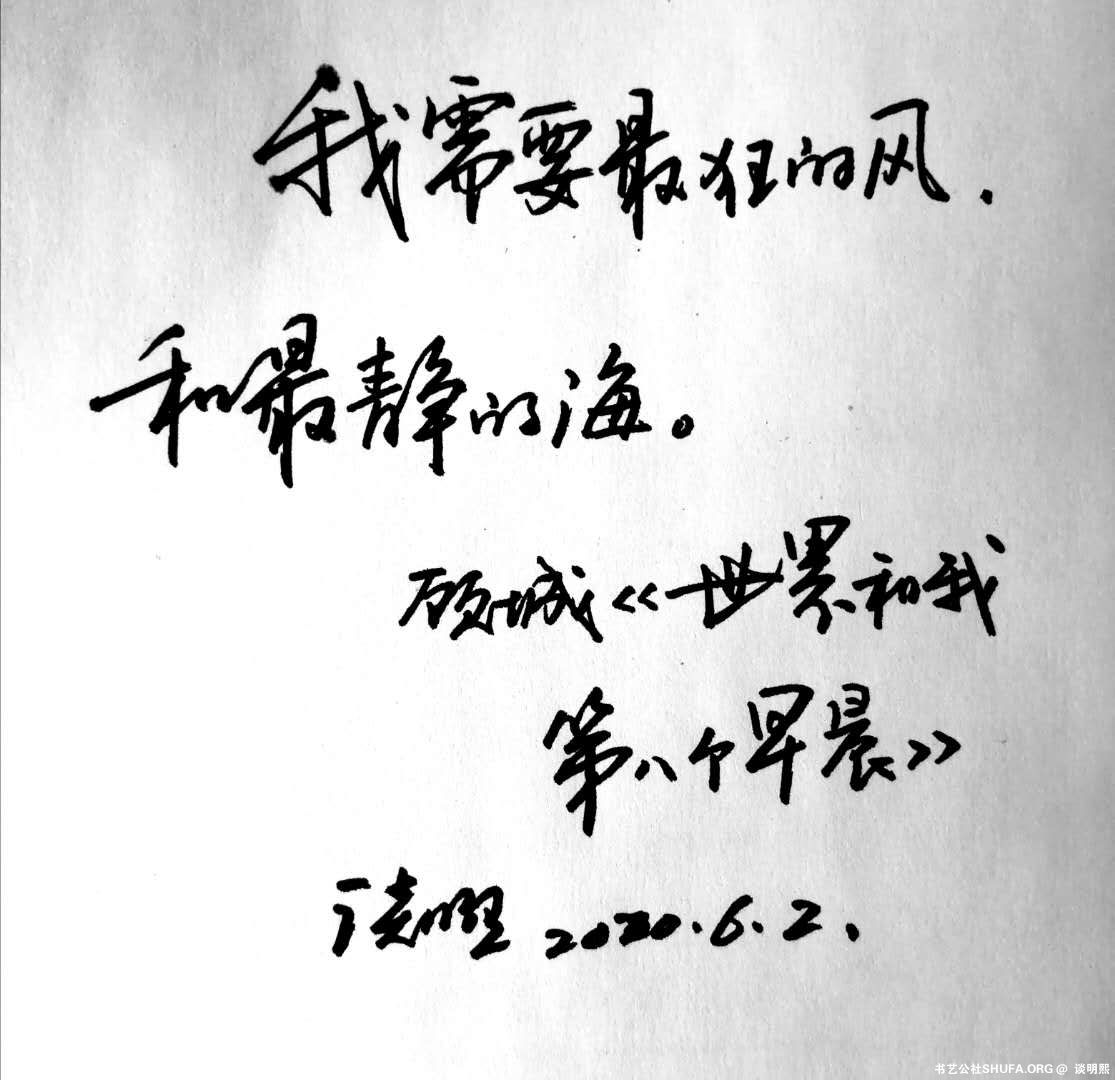 我需要最狂的风.
和最静的海。
顾城《世界和我
第八个早晨》
2020.6.2.
书艺公社SHUFA.ORG @ 谈明熙